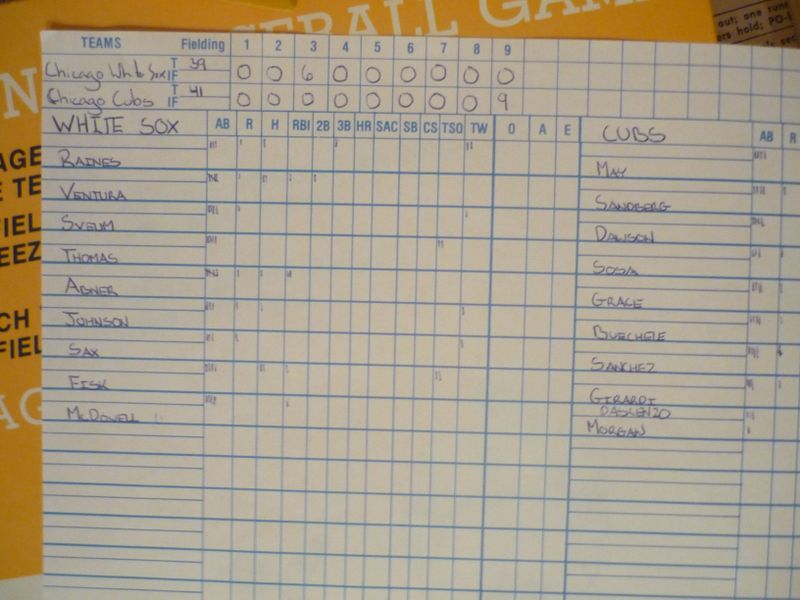 BASEBALL GAME
out; one runn
ers hold; PO-
TEAMS Fielding 1 2 3 4 5 6 7 8 9
Chicago White Sox T 39 IF 0 0 6 0 0 0 0 0 0
Chicago Cubs T 41 IF 0 0 0 0 0 0 0 0 9
WHITE SOX AB R H RBI 2B 3B HR SAC SB CS TSO TW O A E CUBS AB R
RAINES MAY
VENTURA SANDBERG
SVEUM DAWSON
THOMAS SOSA
ABNER GRACE
JOHNSON BUECHELE
SAX SANCHEZ
FISK GIRARDI
DASCENZO
McDOWELL MORGAN
AGE
E TE
FIEL
EEZ
CH
FIEL
AG